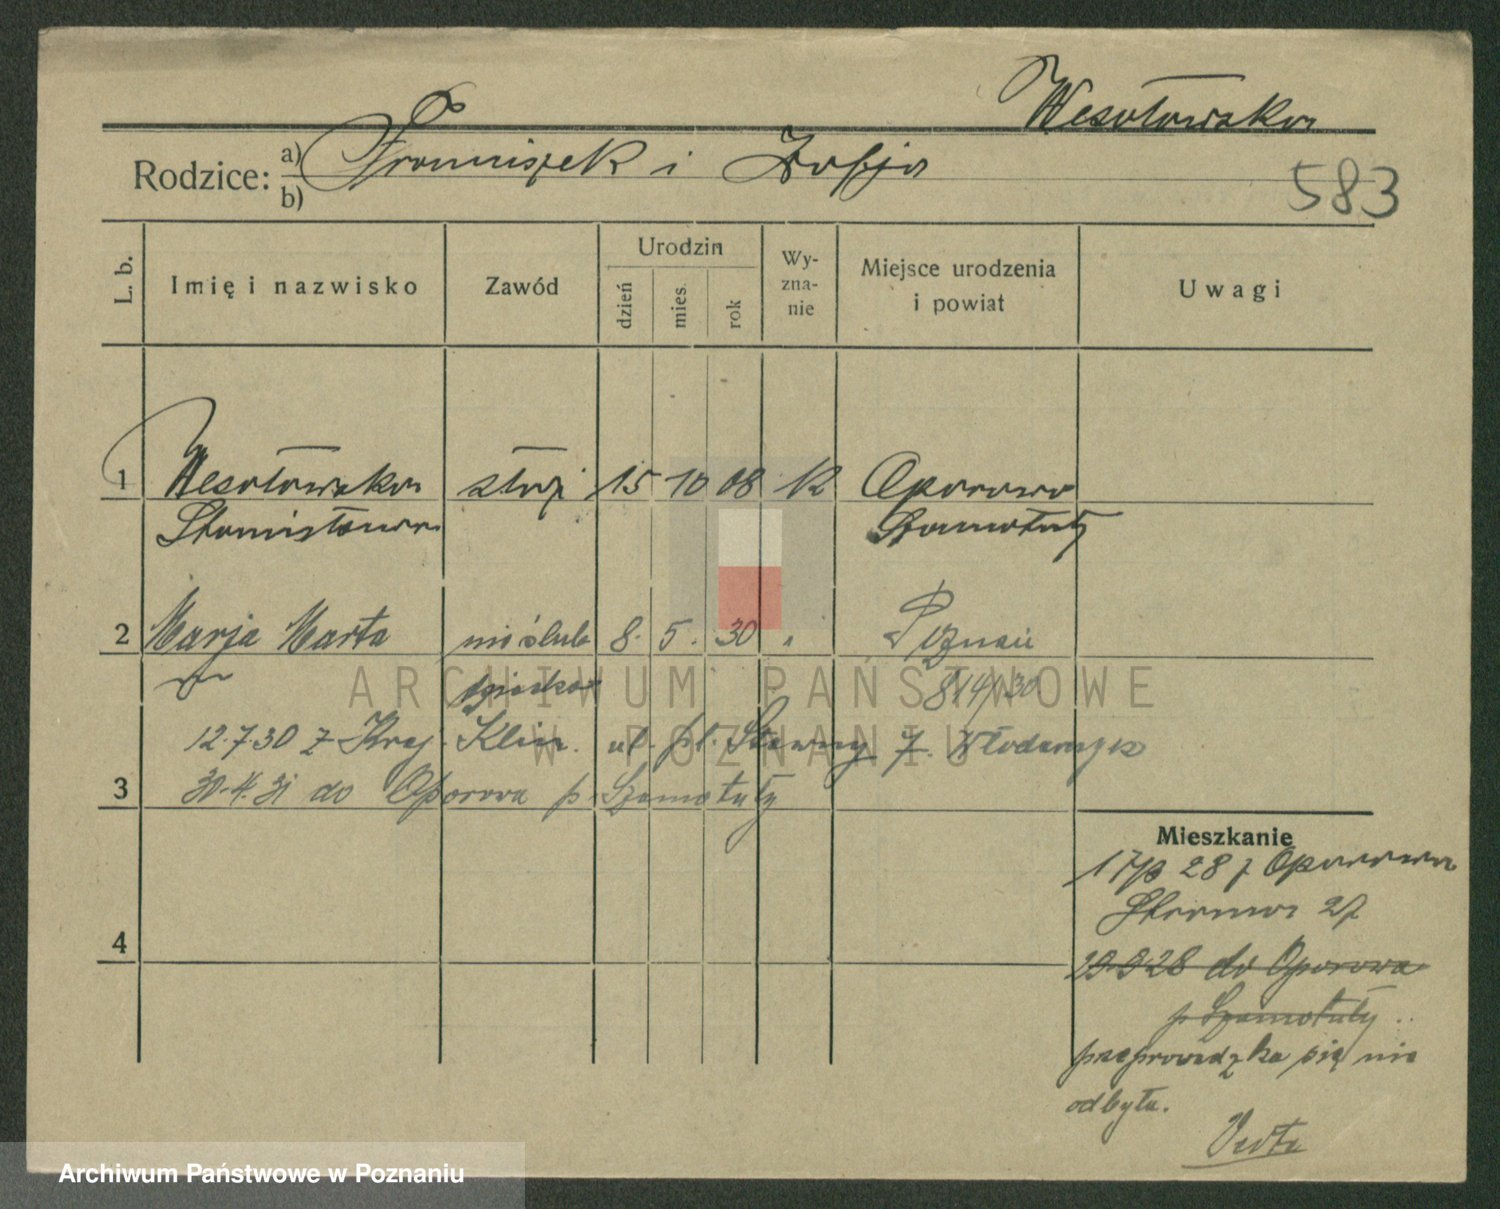 Wesołowska
Rodzice: a) Franciszek i Zofja
b)
583
L. b. Imię i nazwisko Zawód Urodzin dzień mies. rok Wyznanie Miejsce urodzenia i powiat Uwagi
1 Wesołowska służ 15 10 08 k Oporowo
Stanisława Szamotuły
2 Marja Marta nieślub 8. 5. 30 " Poznań
dziecko 814/30
12.7.30 z Kraj. Klin. ul. pl. Sławny 7. Włodarczyk
3 30.4.31 do Oporowa p. Szamotuły
Mieszkanie
28 z Oporowa
27
4
29.9.28 do Oporowa
p Szamotuły
przeprowadzka się nie
odbyła.
Verte
ARCHIWUM PAŃSTWOWE
W POZNANIU
Archiwum Państwowe w Poznaniu